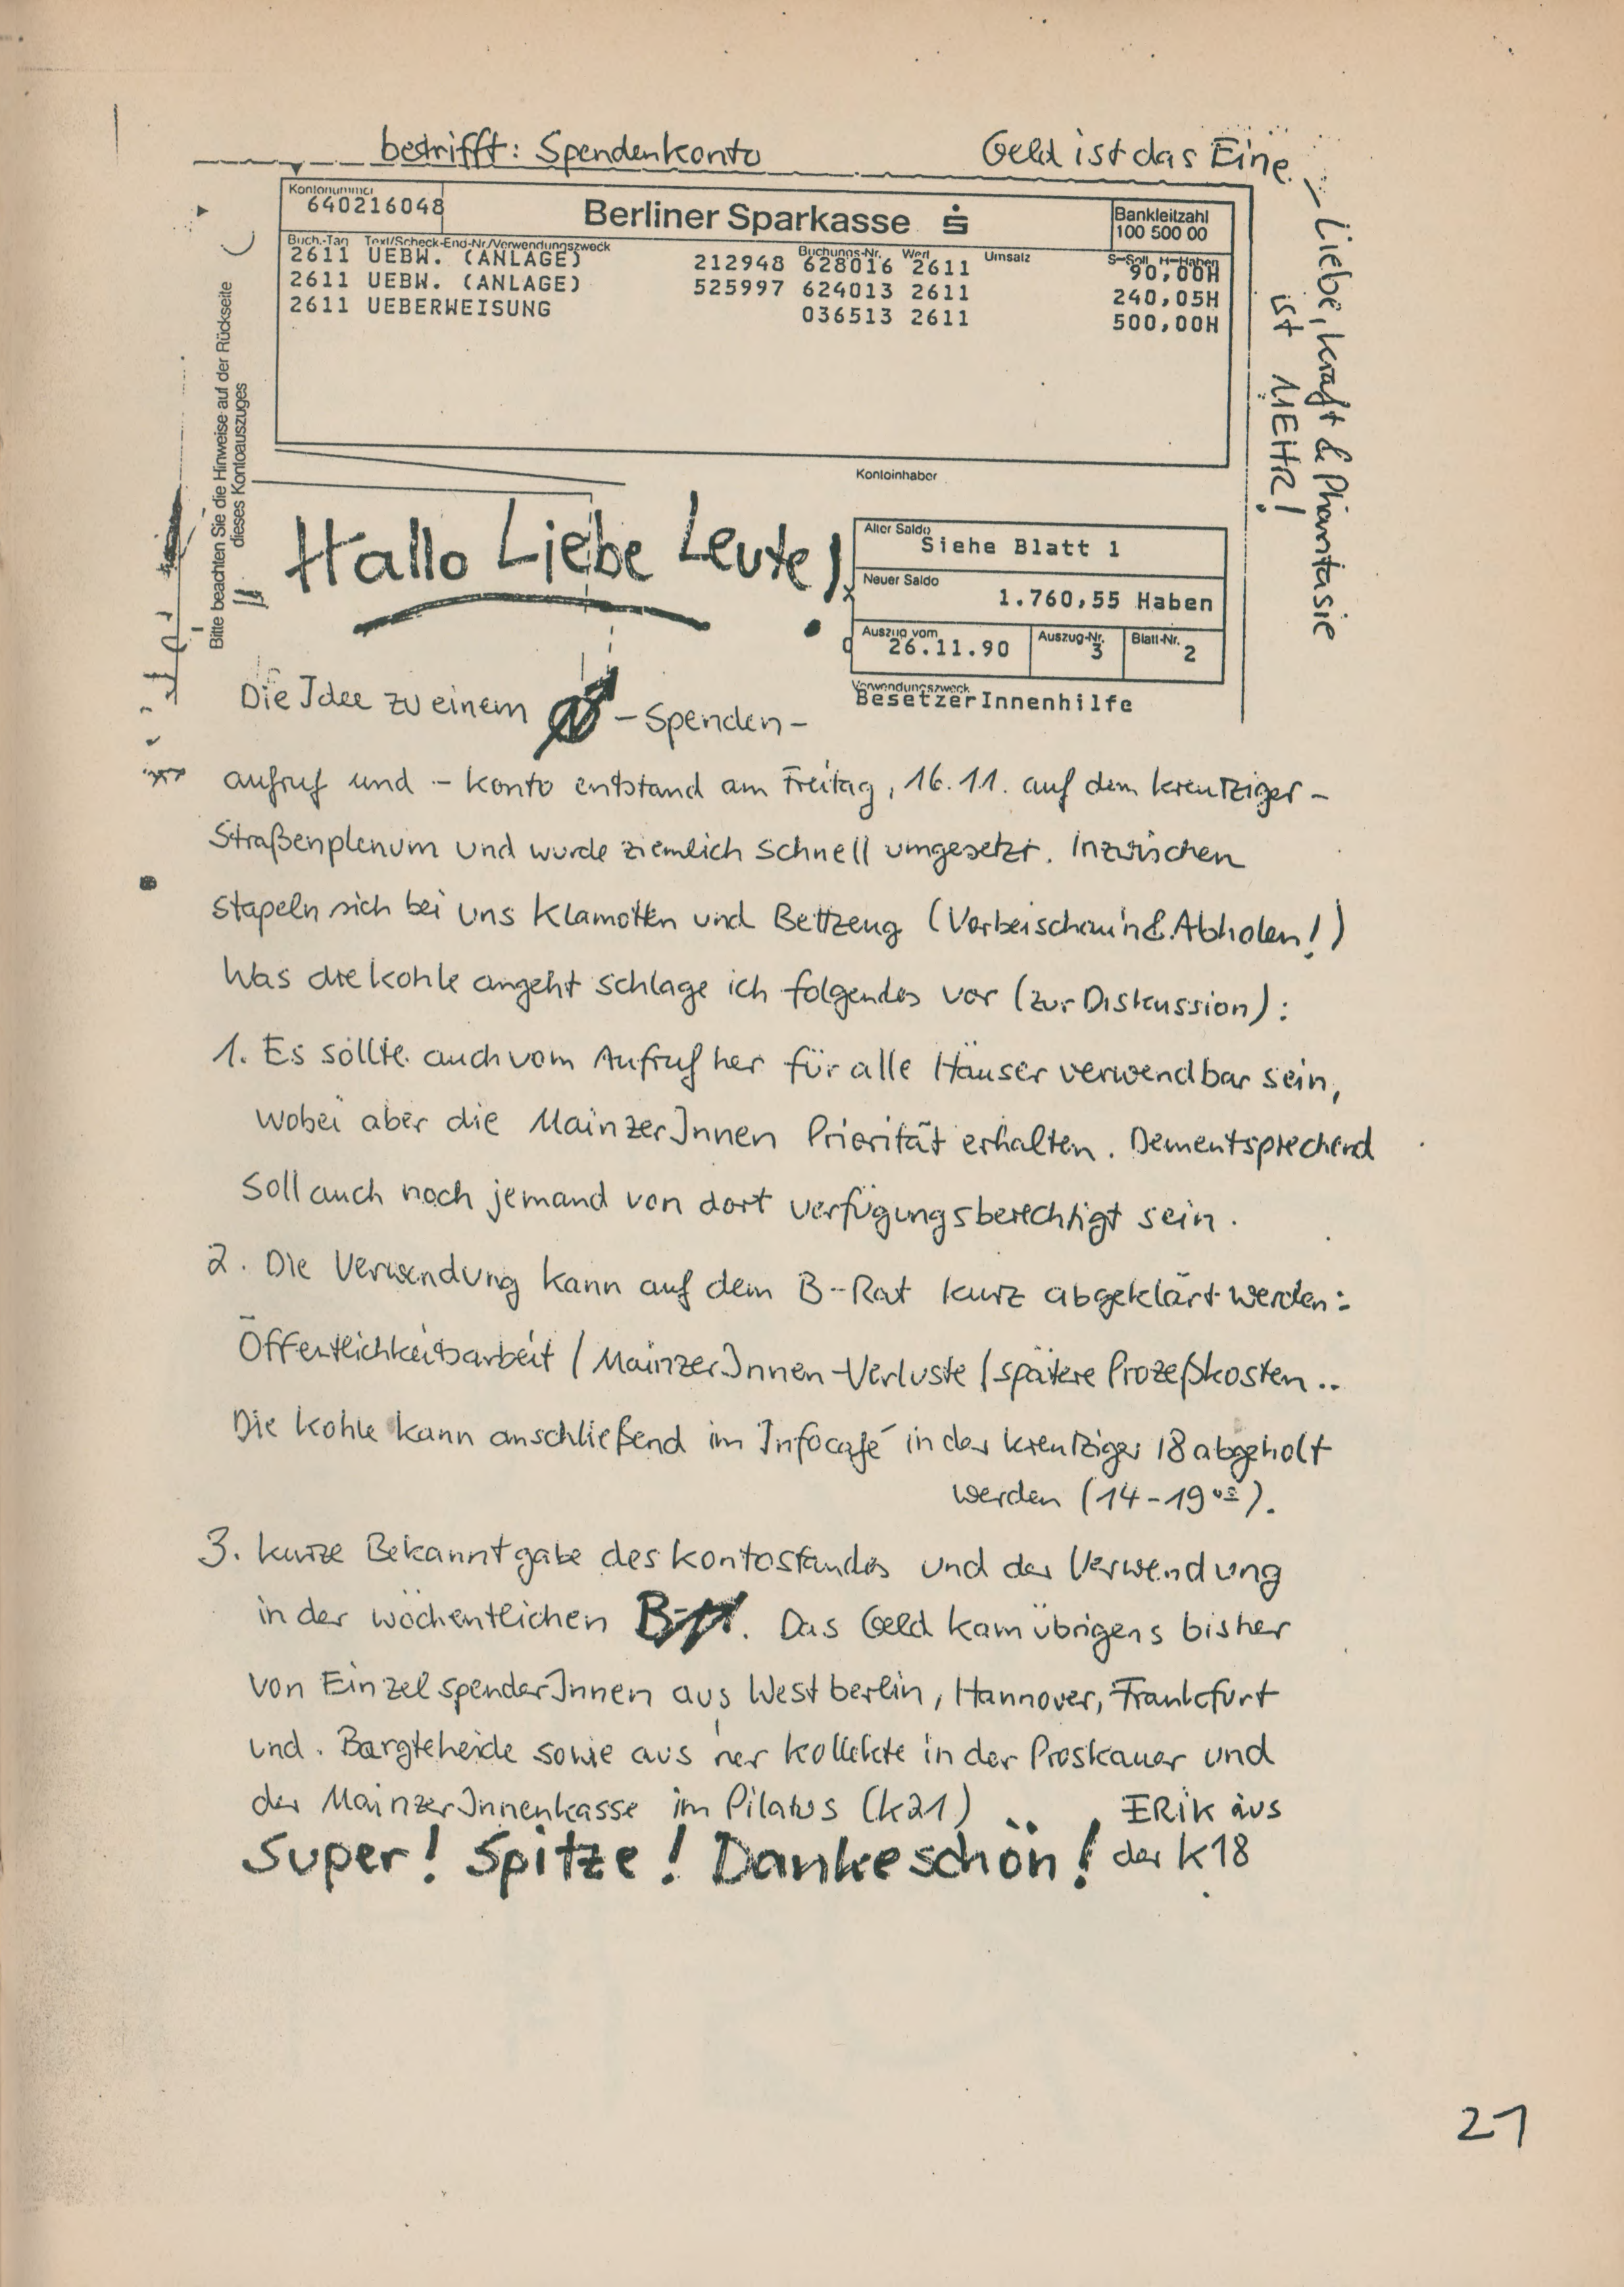 betrifft: Spendenkonto
Geld ist das Eine –
Liebe, Kraft & Phantasie
ist MEHR!
Kontonummer
640216048
Berliner Sparkasse
Bankleitzahl
100 500 00
Buch.-Tag Text/Scheck-End-Nr./Verwendungszweck Buchungs-Nr. Wert Umsatz S=Soll H=Haben
2611 UEBW. (ANLAGE) 212948 628016 2611 90,00H
2611 UEBW. (ANLAGE) 525997 624013 2611 240,05H
2611 UEBERWEISUNG 036513 2611 500,00H
Bitte beachten Sie die Hinweise auf der Rückseite
dieses Kontoauszuges
Kontoinhaber
Hallo Liebe Leute!
Alter Saldo
Siehe Blatt 1
Neuer Saldo
1.760,55 Haben
Auszug vom
26.11.90
Auszug-Nr.
3
Blatt-Nr.
2
Verwendungszweck
BesetzerInnenhilfe
Die Idee zu einem – Spenden –
aufruf und – konto entstand am Freitag, 16.11. auf dem Kreutziger –
Straßenplenum und wurde ziemlich schnell umgesetzt. Inzwischen
stapeln sich bei uns Klamotten und Bettzeug (Vorbeischau'n & Abholen!)
Was die Kohle angeht schlage ich folgendes vor (zur Diskussion):
1. Es sollte auch vom Aufruf her für alle Häuser verwendbar sein,
wobei aber die MainzerInnen Priorität erhalten. Dementsprechend
soll auch noch jemand von dort verfügungsberechtigt sein.
2. Die Verwendung kann auf dem B-Rat kurz abgeklärt werden:
Öffentlichkeitsarbeit / MainzerInnen-Verluste / spätere Prozeßkosten..
Die Kohle kann anschließend im Infocafé in der Kreutziger 18 abgeholt
werden (14-19 00).
3. Kurze Bekanntgabe des Kontostandes und der Verwendung
in der wöchentlichen Das Geld kam übrigens bisher
von EinzelspenderInnen aus Westberlin, Hannover, Frankfurt
und. Bargteheide sowie aus 'ner Kollekte in der Proskauer und
der MainzerInnenkasse im Pilatus (K21)
ERIK aus
der K18
Super! Spitze! Dankeschön!
21